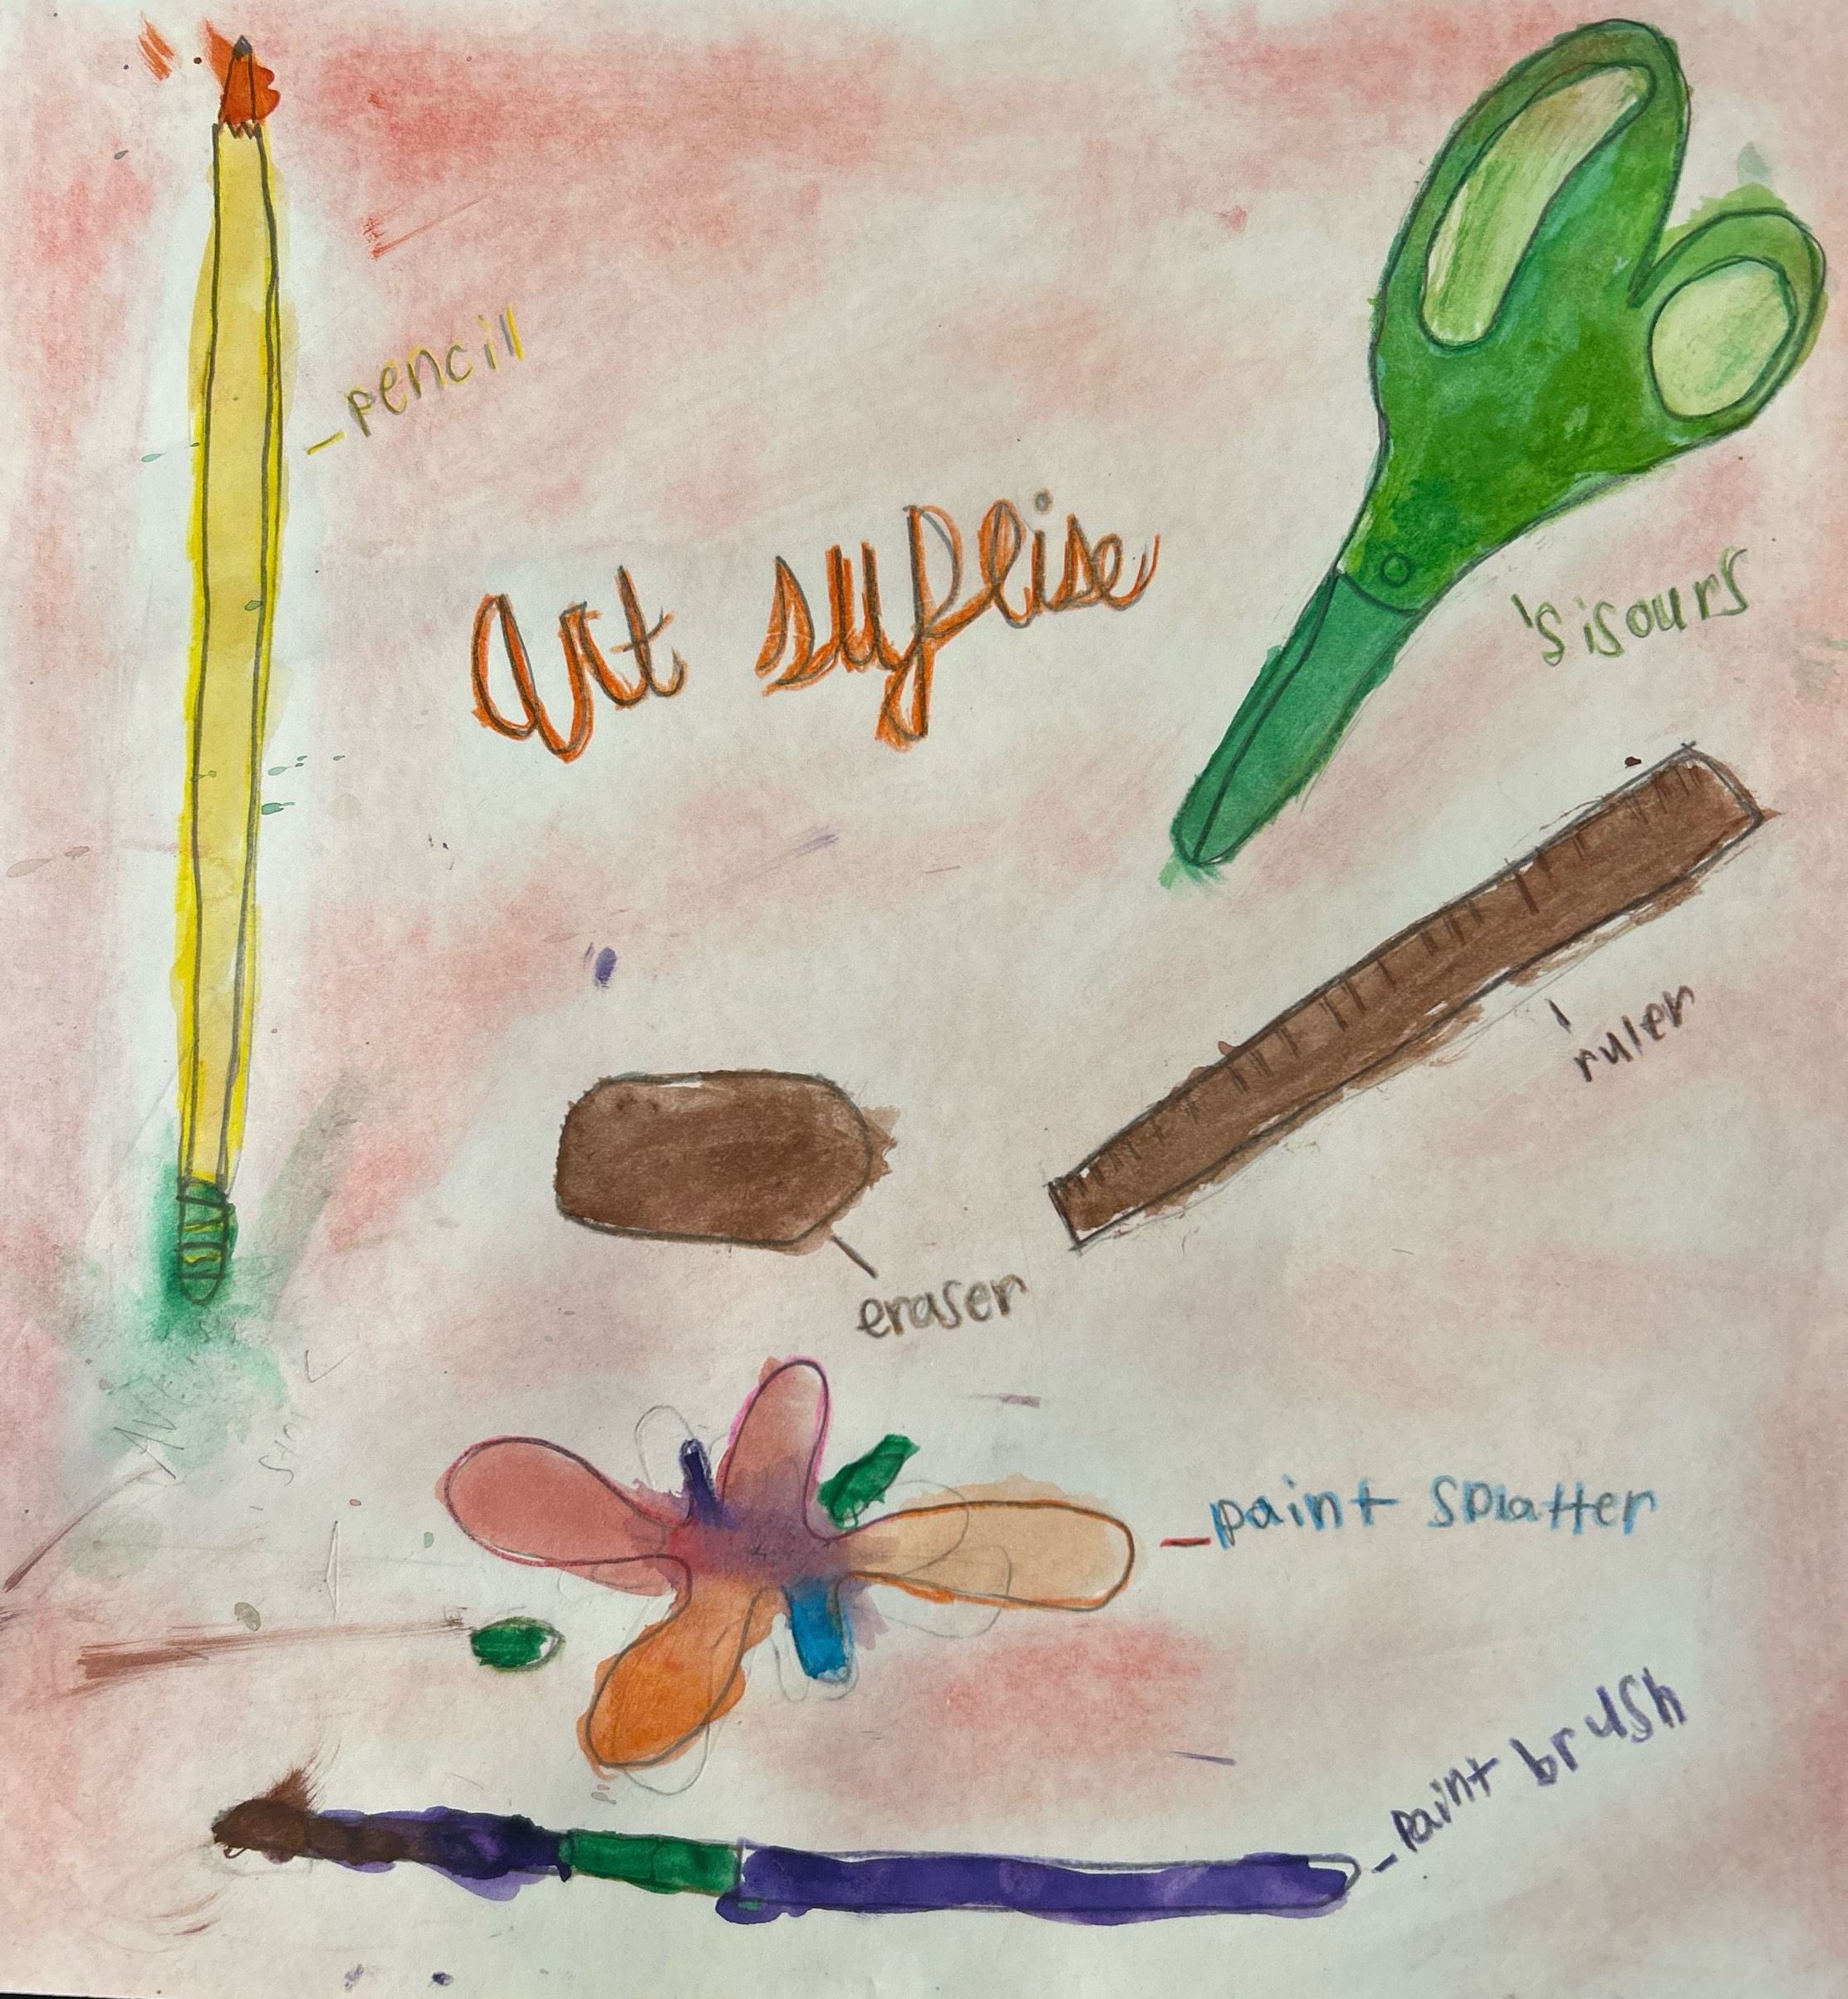 pencill
Art suprise
sisours
ruler
eraser
paint splatter
paint brush